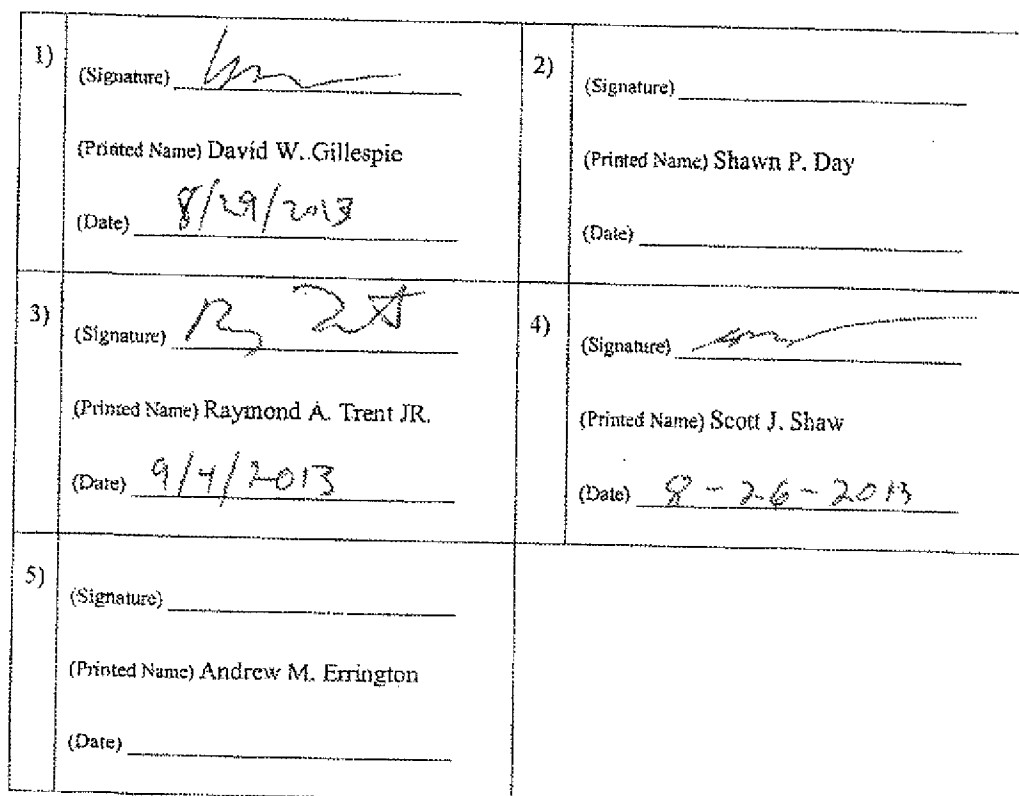 1)
(Signature)
(Printed Name) David W. Gillespie
(Date) 8/29/2013
2)
(Signature)
(Printed Name) Shawn P. Day
(Date)
3)
(Signature)
(Printed Name) Raymond A. Trent JR.
(Date) 9/4/2013
4)
(Signature)
(Printed Name) Scott J. Shaw
(Date) 8-26-2013
5)
(Signature)
(Printed Name) Andrew M. Errington
(Date)